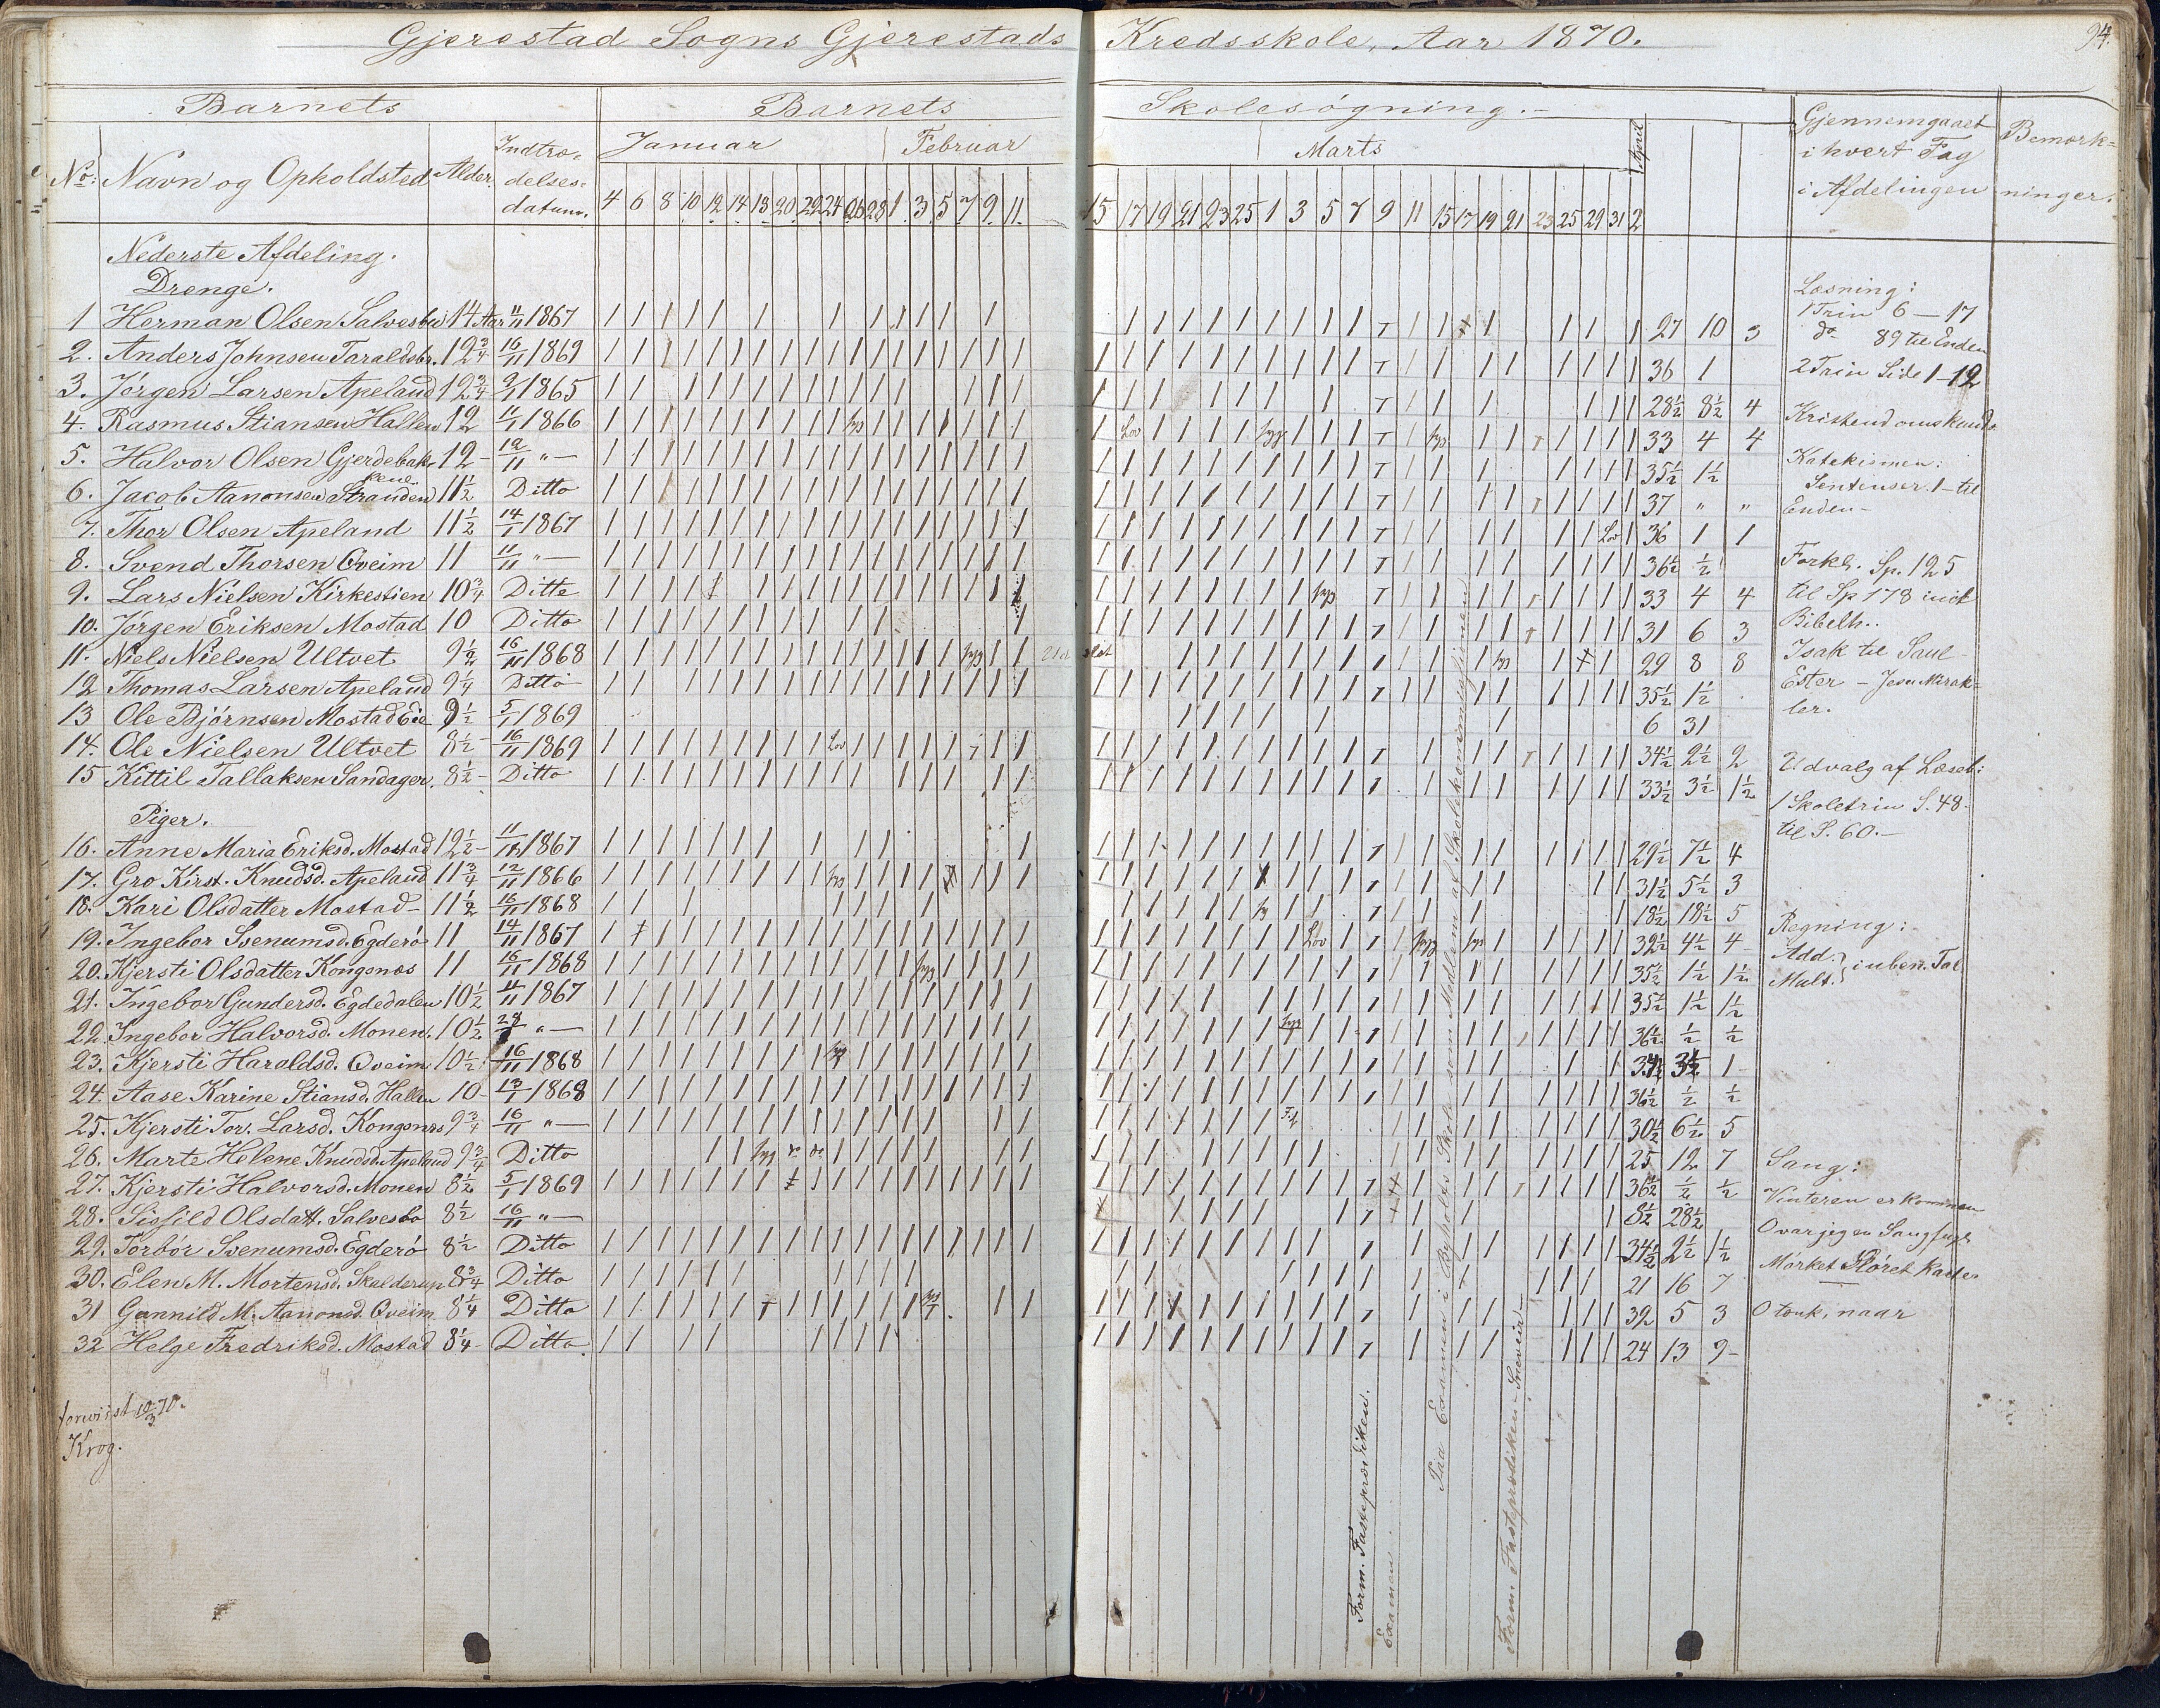 Gjerestad Sogns Gjerestads Kredsskole, Aar 1870.
94.
Barnets Barnets Skolesögning.
No: Navn og Opholdsted Alder. Indtræ-delses-datum. Januar Februar Marts April Gjennemgaaet i hvert Fag i Afdelingen Bemærk-ninger.
4 6 8 10 12 14 18 20 22 24 26 28 1 3 5 7 9 11 15 17 19 21 23 25 1 3 5 7 9 11 15 17 19 21 23 25 29 31 2
Nederste Afdeling.
Drenge.
1 Herman Olsen Salvesbu 14 Aar 11/11 1867 27 10 3
2. Anders Johnsen Taraldsbr. 12 3/4 16/11 1869 36 1
3. Jörgen Larsen Apeland 12 3/4 9/1 1865 28 1/2 8 1/2 4
4. Rasmus Stiansen Hallen 12 11/1 1866 33 4 4
5. Halvor Olsen Gjerdebakkene 12 - 12/11 " — 35 1/2 1 1/2
6. Jacob Aanonsen Stranden 11 1/2 Ditto 37 " "
7. Thor Olsen Apeland 11 1/2 14/1 1867 36 1 1
8. Svend Thorsen Qveim 11 11/11 " — 36 1/2 1/2
9. Lars Nielsen Kirkestien 10 3/4 Ditto 33 4 4
10. Jörgen Eriksen Mostad 10 Ditto 31 6 3
11. Niels Nielsen Ultvet 9 1/2 16/11 1868 29 8 8
12 Thomas Larsen Apeland 9 1/4 Ditto 35 1/2 1 1/2
13 Ole Björnsen Mostad Eie 9 1/2 5/1 1869 6 31
14. Ole Nielsen Ultvet 8 1/2 16/11 1869 34 1/2 2 1/2 2
15 Kittil Tallaksen Sandager. 8 1/2 - Ditto 33 1/2 3 1/2 1 1/2
Piger.
16. Anne Maria Eriksd. Mostad 12 1/2 - 11/11 1867 29 1/2 7 1/2 4
17. Gro Kirst. Knudsd. Apeland 11 3/4 12/11 1866 31 1/2 5 1/2 3
18. Kari Olsdatter Mostad - 11 1/2 16/11 1868 18 1/2 18 1/2 5
19. Ingebor Svenumsd. Egderö 11 14/11 1867 32 1/2 4 1/2 4
20. Kjersti Olsdatter Kongsnæs 11 16/11 1868 35 1/2 1 1/2 1 1/2
21. Ingebor Gundersd. Egdedalen 10 1/2 11/11 1867 35 1/2 1 1/2 1 1/2
22. Ingebor Halvorsd. Monen. 10 1/2 " — 36 1/2 1/2 1/2
23. Kjersti Haroldsd. Qveim 10 1/2 16/11 1868 1
24. Aase Karine Stiansd. Hallen 10 - 13/1 1868 36 1/2 1/2 1/2
25. Kjersti Tor. Larsd. Kongsnæs 9 3/4 16/11 " — 30 1/2 6 1/2 5
26. Marte Helene Knudsd. Apeland 9 3/4 Ditto 25 12 7
27. Kjersti Halvorsd. Monen 8 1/2 5/1 1869 36 1/2 1/2 1/2
28. Sisfild Olsdatt. Salvesbo 8 1/2 16/11 " — 8 1/2 28 1/2
29. Torbör Svenumsd. Egderö 8 1/2 Ditto 34 1/2 2 1/2 1 1/2
30. Elen M. Mortensd. Skulderup 8 3/4 Ditto 21 16 7
31 Gunnild M. Aanonsd. Qveim 8 1/4 Ditto 32 5 3
32 Helge Fredriksd. Mostad 8 1/4 - Ditto 24 13 9 -
Læsning:
1 Trin 6 — 17
do 89 til Enden
2 Trin Side 1 - 12
Kristendomskunds
Katekismen:
Sentenser. 1 - til
Enden -
Forkl. Sp. 125
til Sp 178 incl
Bibelh..
Isak til Saul -
Ester - Jesu Mirak=
ler.
Udvalg af Læseb:
1 Skoletrin S. 48.
til S. 60. -
Regning:
Add. } i uben. Tal
Mult.
Sang:
Vinteren er kommen
O var jeg en Sangfugl
Mörket Slöret kaster
O tænk, naar
Form. Fasteprædiken.
Examen.
Paa Examen i Skole som Medlem af Skolekommissionen
Form Fasteprædiken - Sneveir -
19/3 70.
Krog.